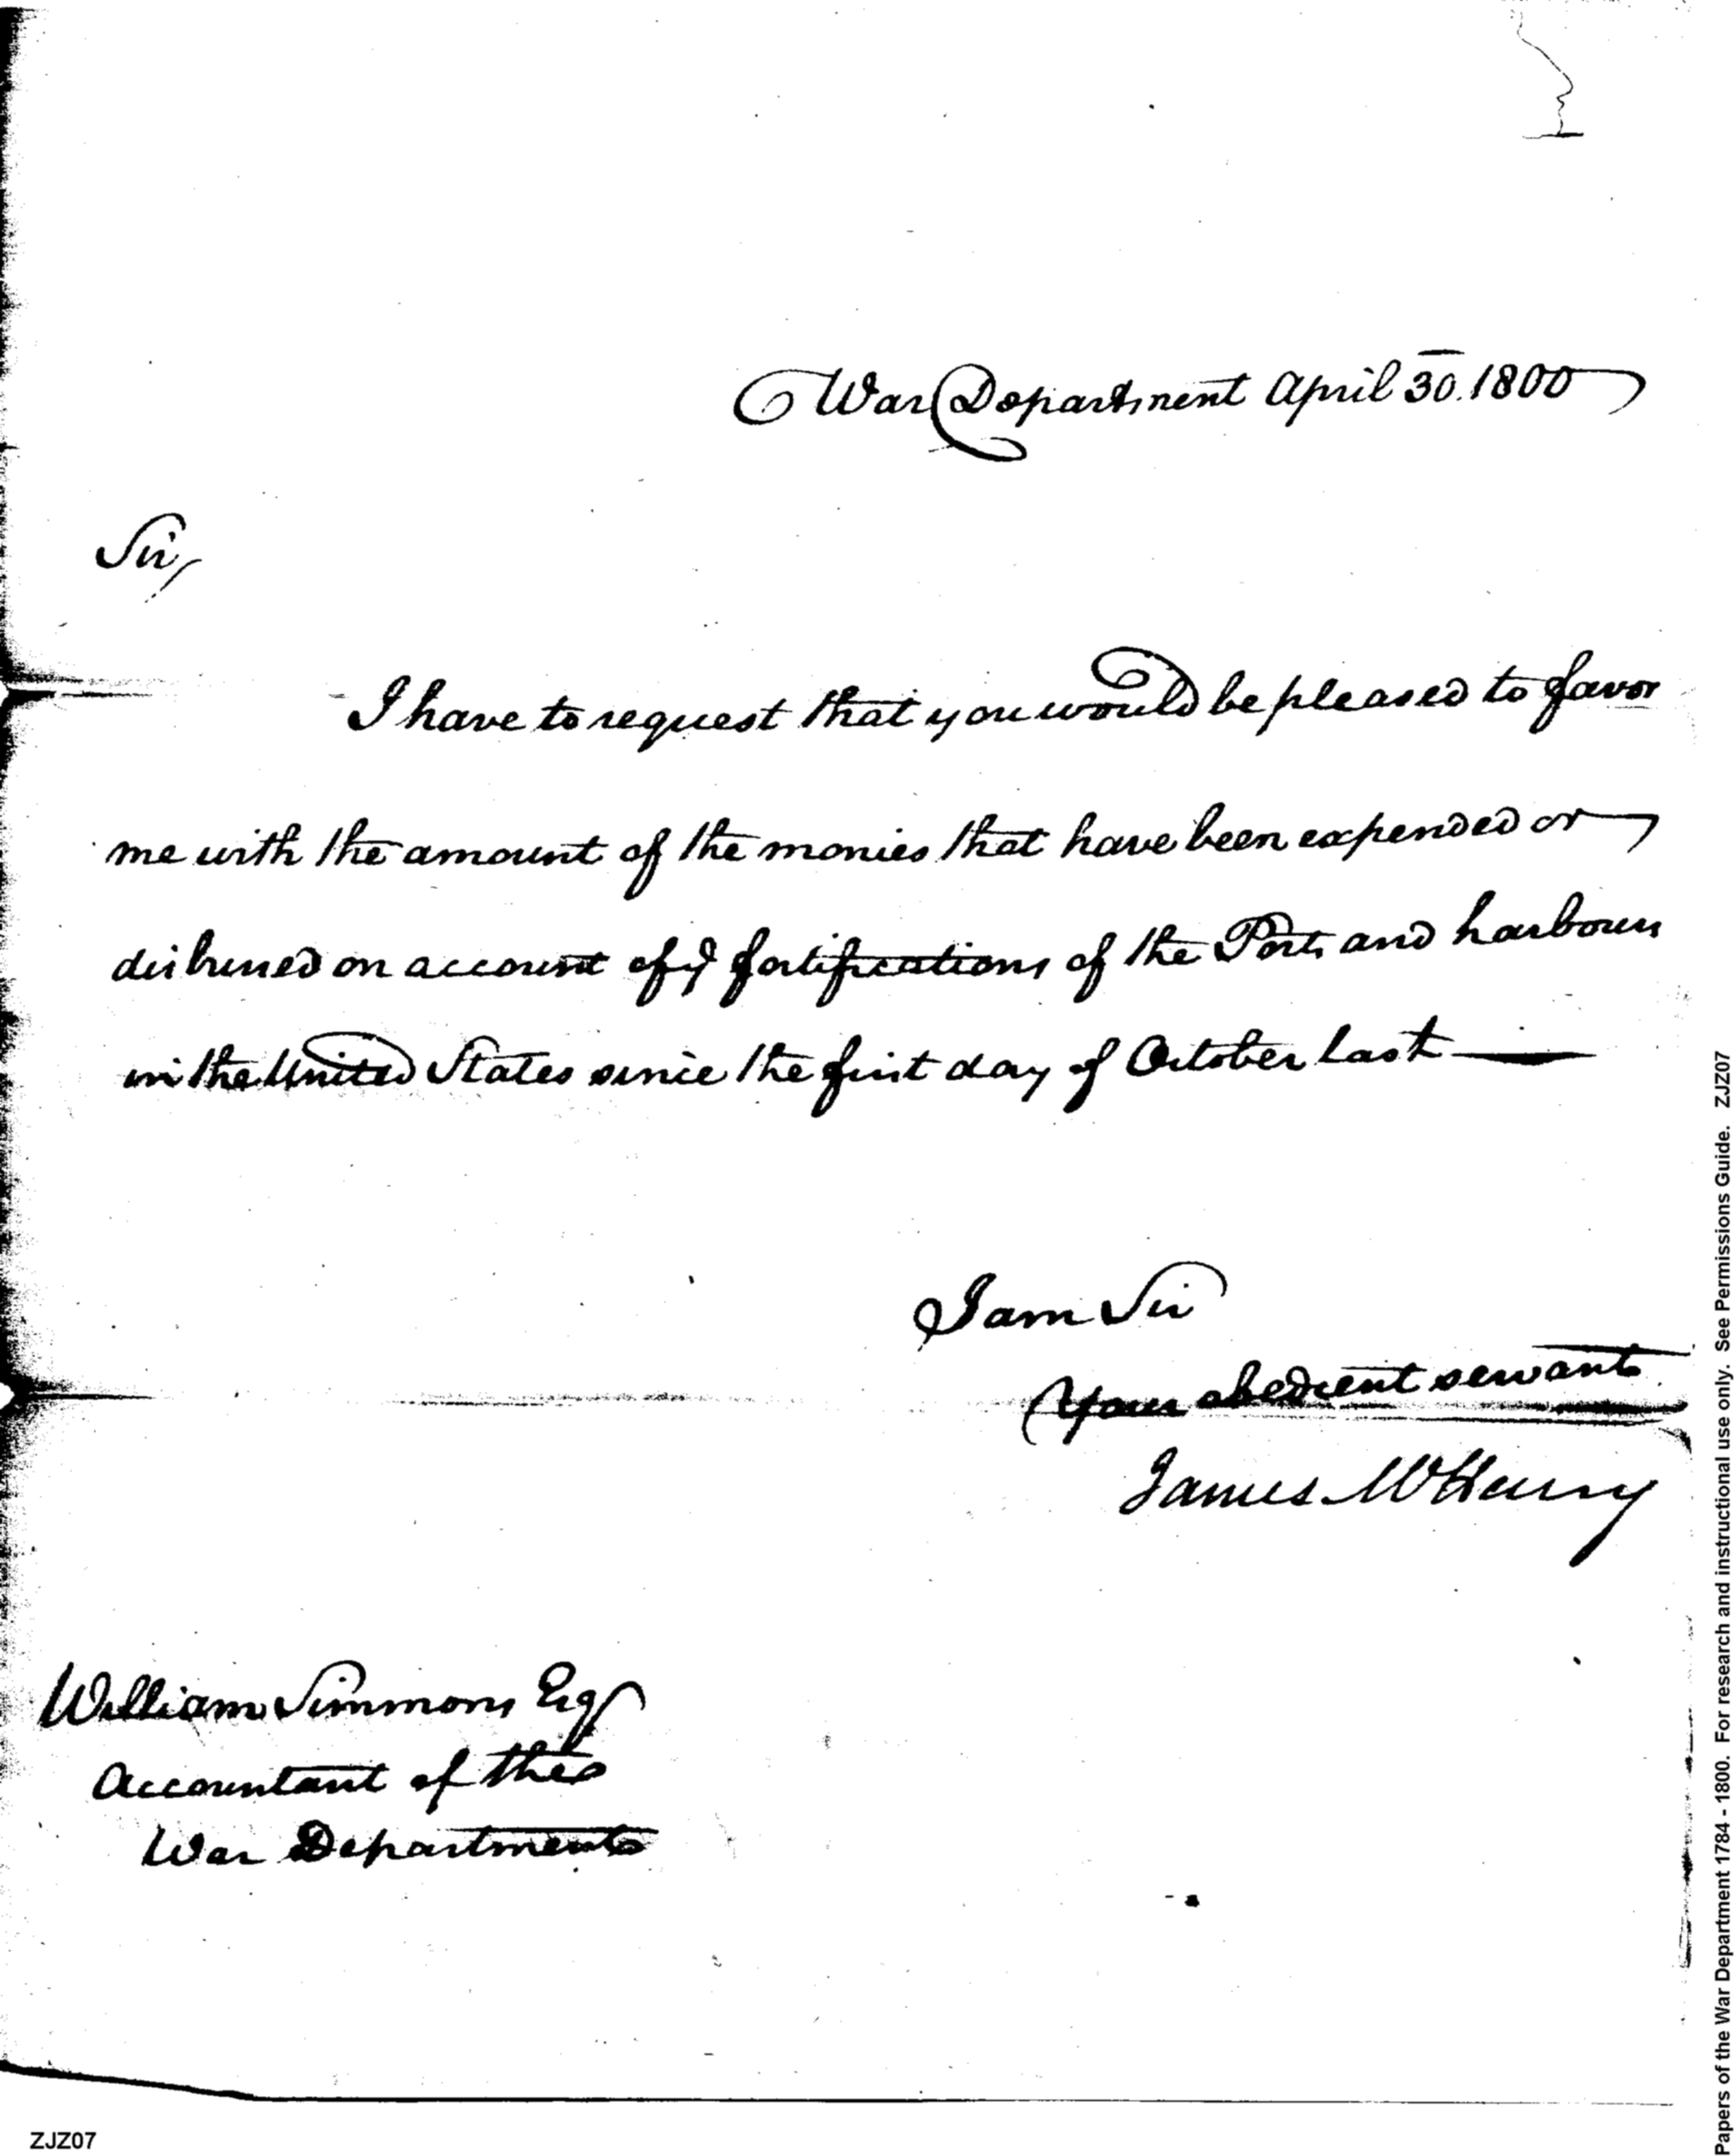 War Department April 30. 1800
Sir,
I have to request that you would be pleased to favor
me with the amount of the monies that have been expended or
disbursed on account of ye fortifications of the Ports and harbours
in the United States since the first day of October last
I am Sir
Your obedient servant
James McHenry
William Simmons Esq
Accountant of the
War Department
ZJZ07
Papers of the War Department 1784 - 1800. For research and instructional use only. See Permissions Guide. ZJZ07